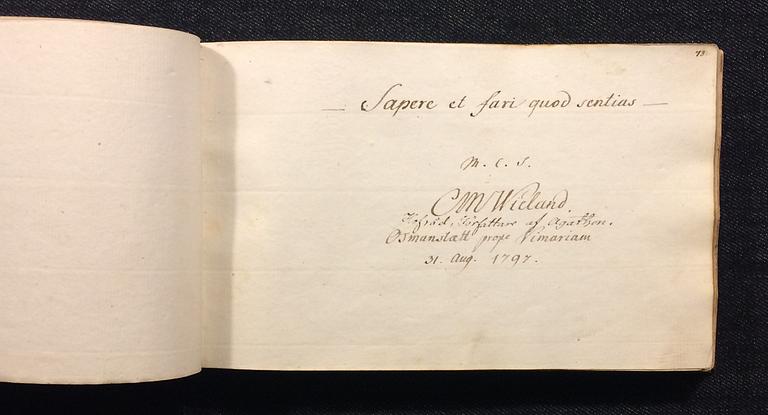 73
— Sapere et fari quod sentias —
M. C. S.
CMWieland
Hofråd, Författare af Agathon.
Osmanstætt prope Vimariam
31. Aug. 1797.